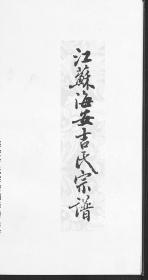 江蘇海安吉氏宗譜